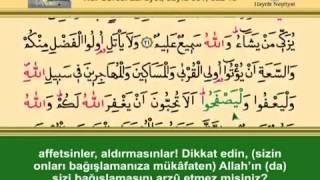 Hayrât Neşriyat
يُزَكّٖي مَنْ يَشَٓاءُ وَاللّٰهُ سَمٖيعٌ عَلٖيمٌ ﴿٢١﴾ وَلَا يَأْتَلِ اُو۬لُوا الْفَضْلِ مِنْكُمْ
وَالسَّعَةِ اَنْ يُؤْتُٓوا اُو۬لِي الْقُرْبٰى وَالْمَسَاكٖينَ وَالْمُهَاجِرٖينَ فٖي سَبٖيلِ اللّٰهِ
وَلْيَعْفُوا وَلْيَصْفَحُوا اَلَا تُحِبُّونَ اَنْ يَغْفِرَ اللّٰهُ لَكُمْ وَاللّٰهُ
affetsinler, aldırmasınlar! Dikkat edin, (sizin
onları bağışlamanıza mükâfaten) Allah'ın (da)
sizi bağışlamasını arzû etmez misiniz?